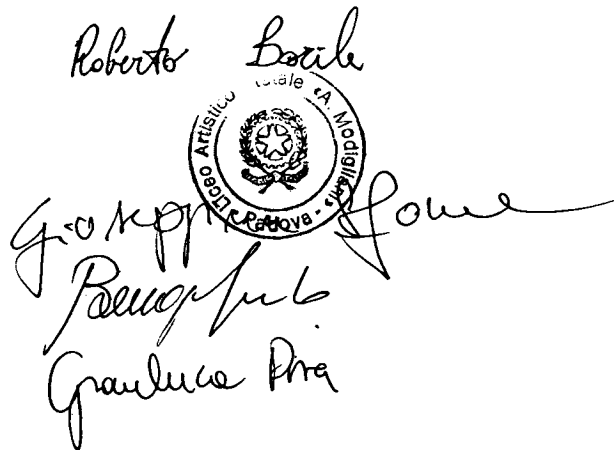 Roberto Borile
Liceo Artistico Statale «A. Modigliani» Padova -
Giuseppe
Gianluca Piva